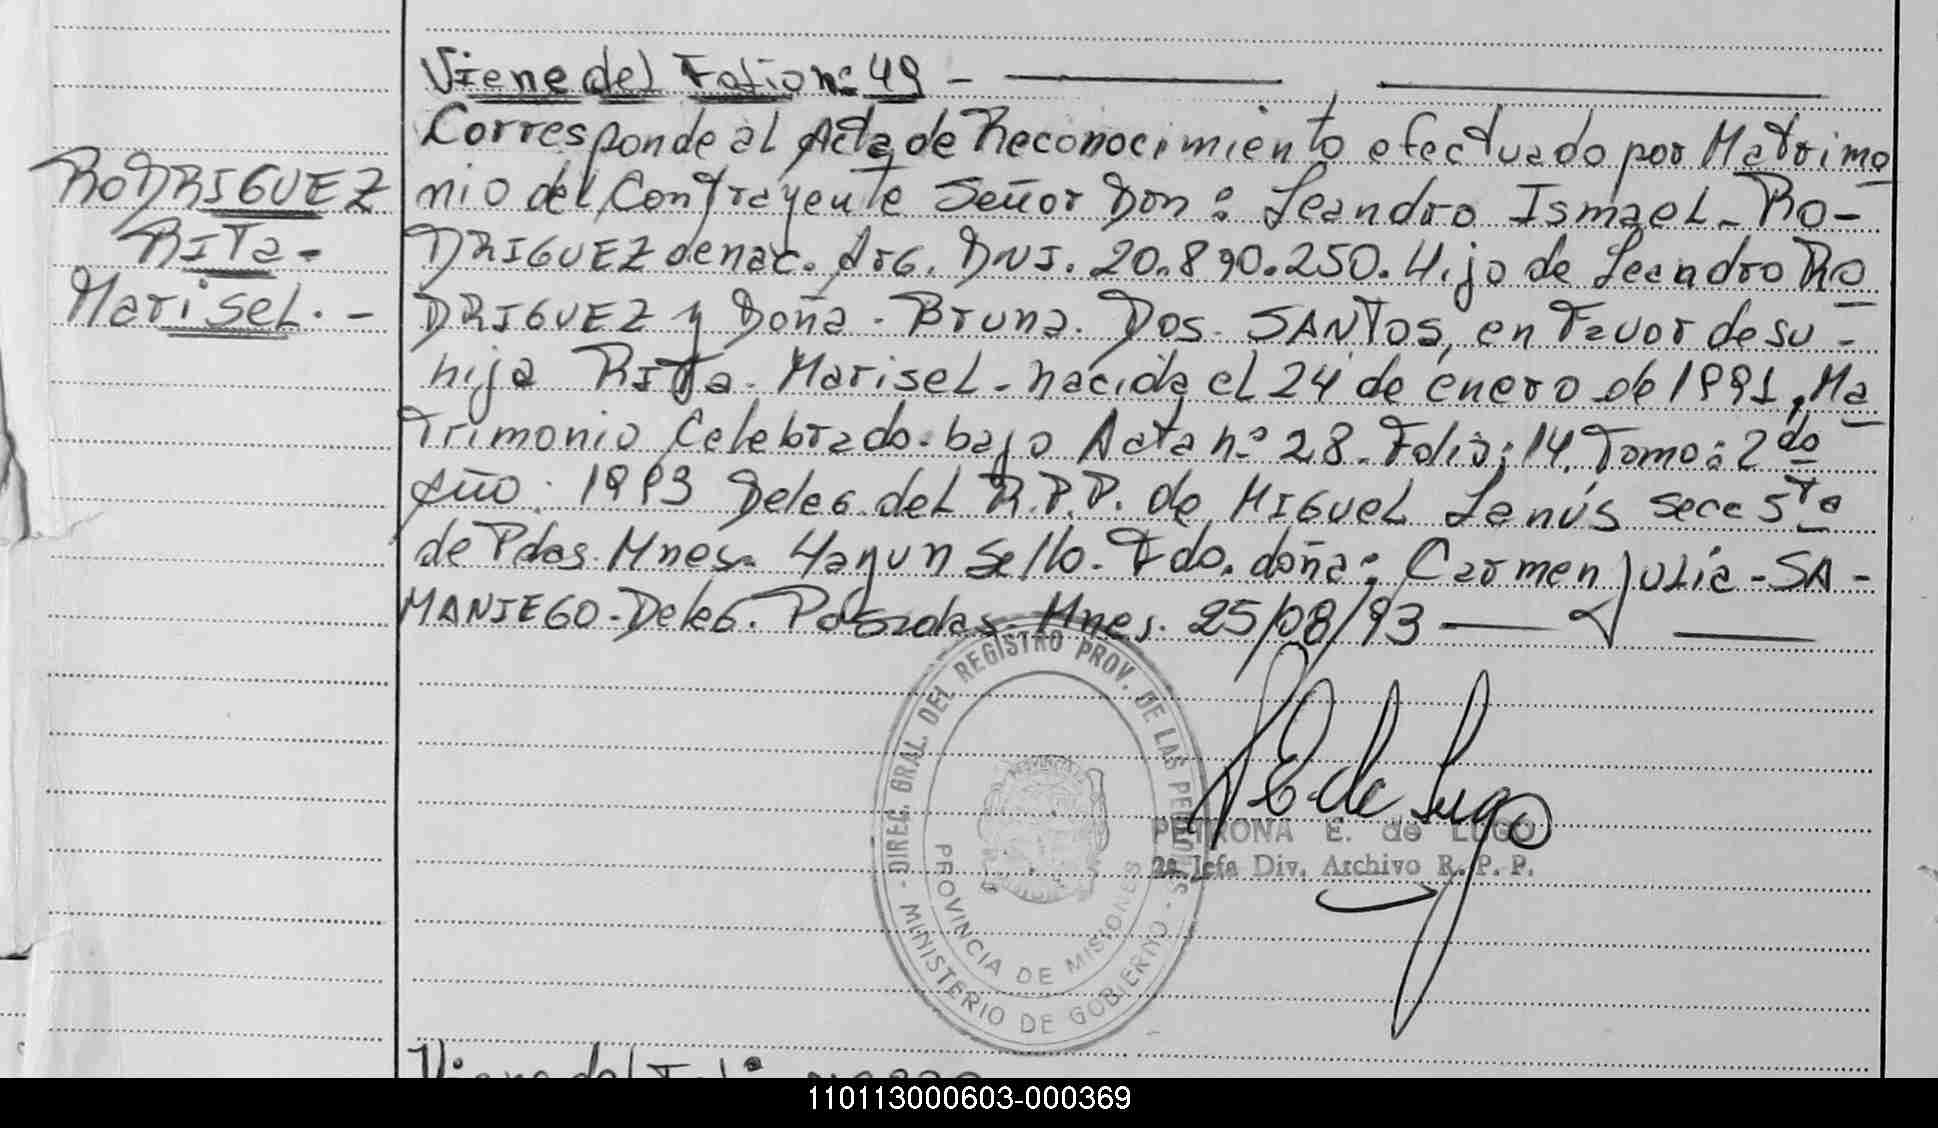 Viene del Folio nº 49 -
RODRIGUEZ
RITa -
Marisel. -
Corresponde al Acta de Reconocimiento efectuado por Matrimo
nio del Contrayente Señor Don: Leandro Ismael - RO-
DRIGUEZ de nac. Arg. DNI. 20.890.250. Hijo de Leandro RO
DRIGUEZ y Doña - Bruna. Dos - SANTOS, en Favor de su -
hija RITa - Marisel - nacida el 24 de enero de 1991, Ma
trimonio Celebrado - bajo Acta nº 28 - Folio: 14, Tomo: 2do
Año: 1993 Deleg. del R.P.P. de Miguel Lanús secc 5ta
de Pdas. Mnes. Hay un Sello. Fdo. doña: Carmen Julia - SA-
MANIEGO - Deleg. Posadas - Mnes. 25/08/93
DIREC. GRAL. DEL REGISTRO PROV. DE LAS PERSONAS
PROVINCIA DE MISIONES
MINISTERIO DE GOBIERNO
P E de Lugo
PETRONA E. de LUGO
2a. Jefa Div. Archivo R. P. P.
Viene del Folio
110113000603-000369